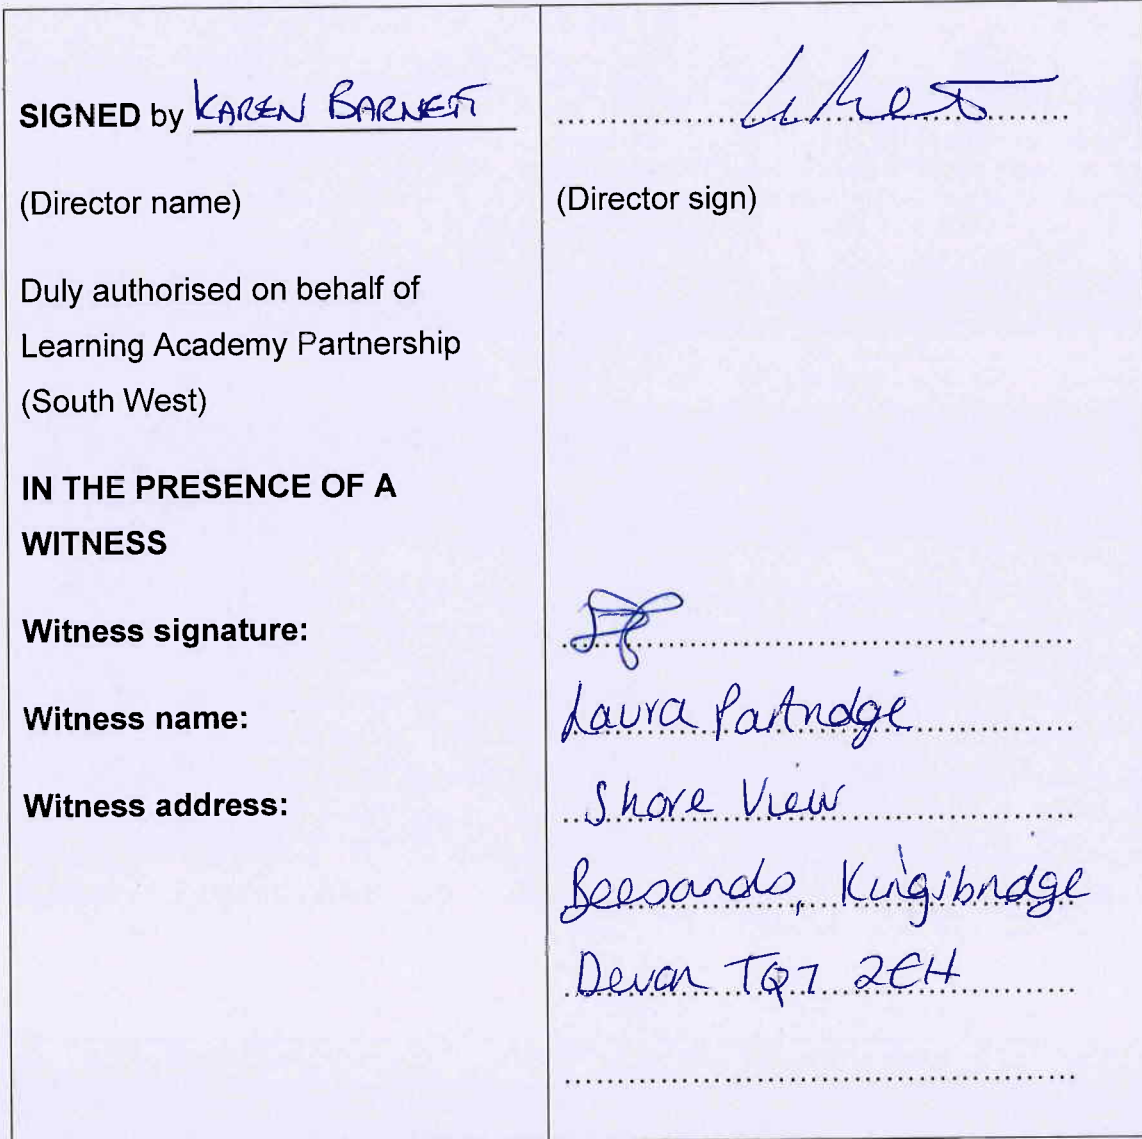 SIGNED by KAREN BARNETT
(Director name)
(Director sign)
Duly authorised on behalf of
Learning Academy Partnership
(South West)
IN THE PRESENCE OF A
WITNESS
Witness signature:
Witness name: Laura Partridge
Witness address: Shore View
Beesands, Kingsbridge
Devon TQ7 2EH